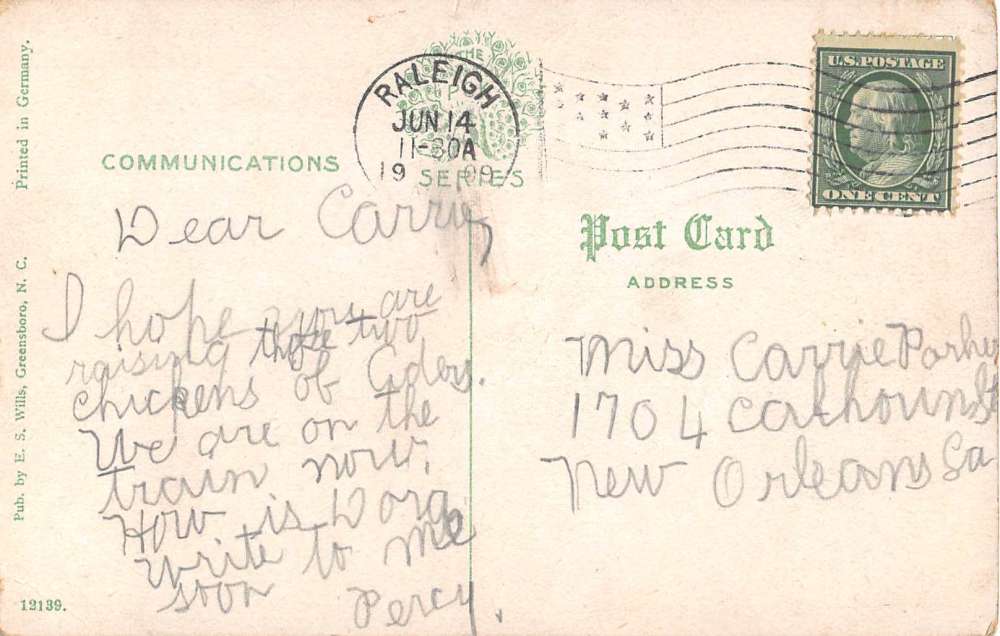 Pub. by E. S. Wills, Greensboro, N. C. Printed in Germany.
COMMUNICATIONS
THE
SERIES
RALEIGH
JUN 14
11-30A
1909
U.S. POSTAGE
ONE CENT
Post Card
ADDRESS
Dear Carrie,
I hope you are
raising those two
chickens of
We are on the
train now.
How is Dora
write to me
soon
Percy.
Miss Carrie
1704 Calhoun St
New Orleans La
12139.